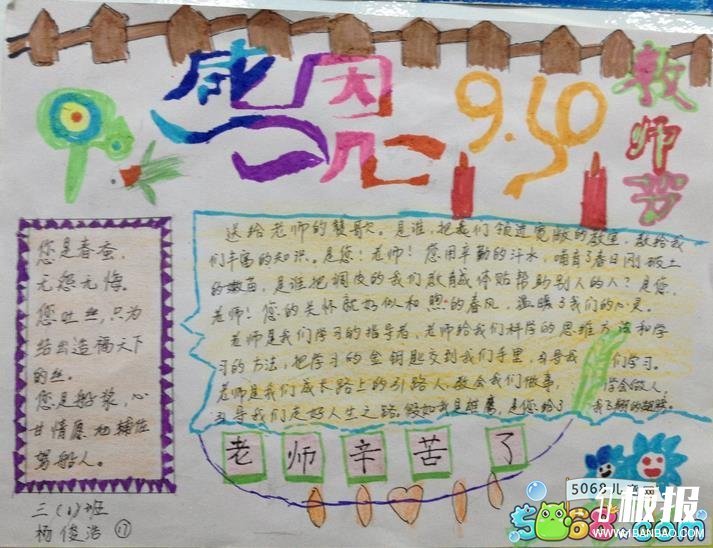 感恩
9.10
教师节
您是春蚕，
无怨无悔。
您吐丝，只为
结出造福天下
的丝。
您是船桨，心
甘情愿地捕位
驾船人。
送给老师的赞歌。是谁，把我们领进宽敞的教室，教给我
们丰富的知识。是您！老师！您用辛勤的汗水，哺育了春日刚破土
的嫩苗，是谁把调皮的我们教育成体贴帮助别人的人？是您，
老师！您的关怀就好似和煦的春风，温暖了我们的心灵。
老师是我们学习的指导者，老师给我们科学的思维方法和学
习的方法，把学习的金钥匙交到我们手里，引导我们学习。
老师是我们成长路上的引路人，教会我们做事，学会做人，
引导我们走好人生之路。假如我是雄鹰，是您给了我飞翔的翅膀。
老师辛苦了
三（1）班
杨俊浩 17
5068儿童网
5068.com
板报
WWW.1BANBAO.COM